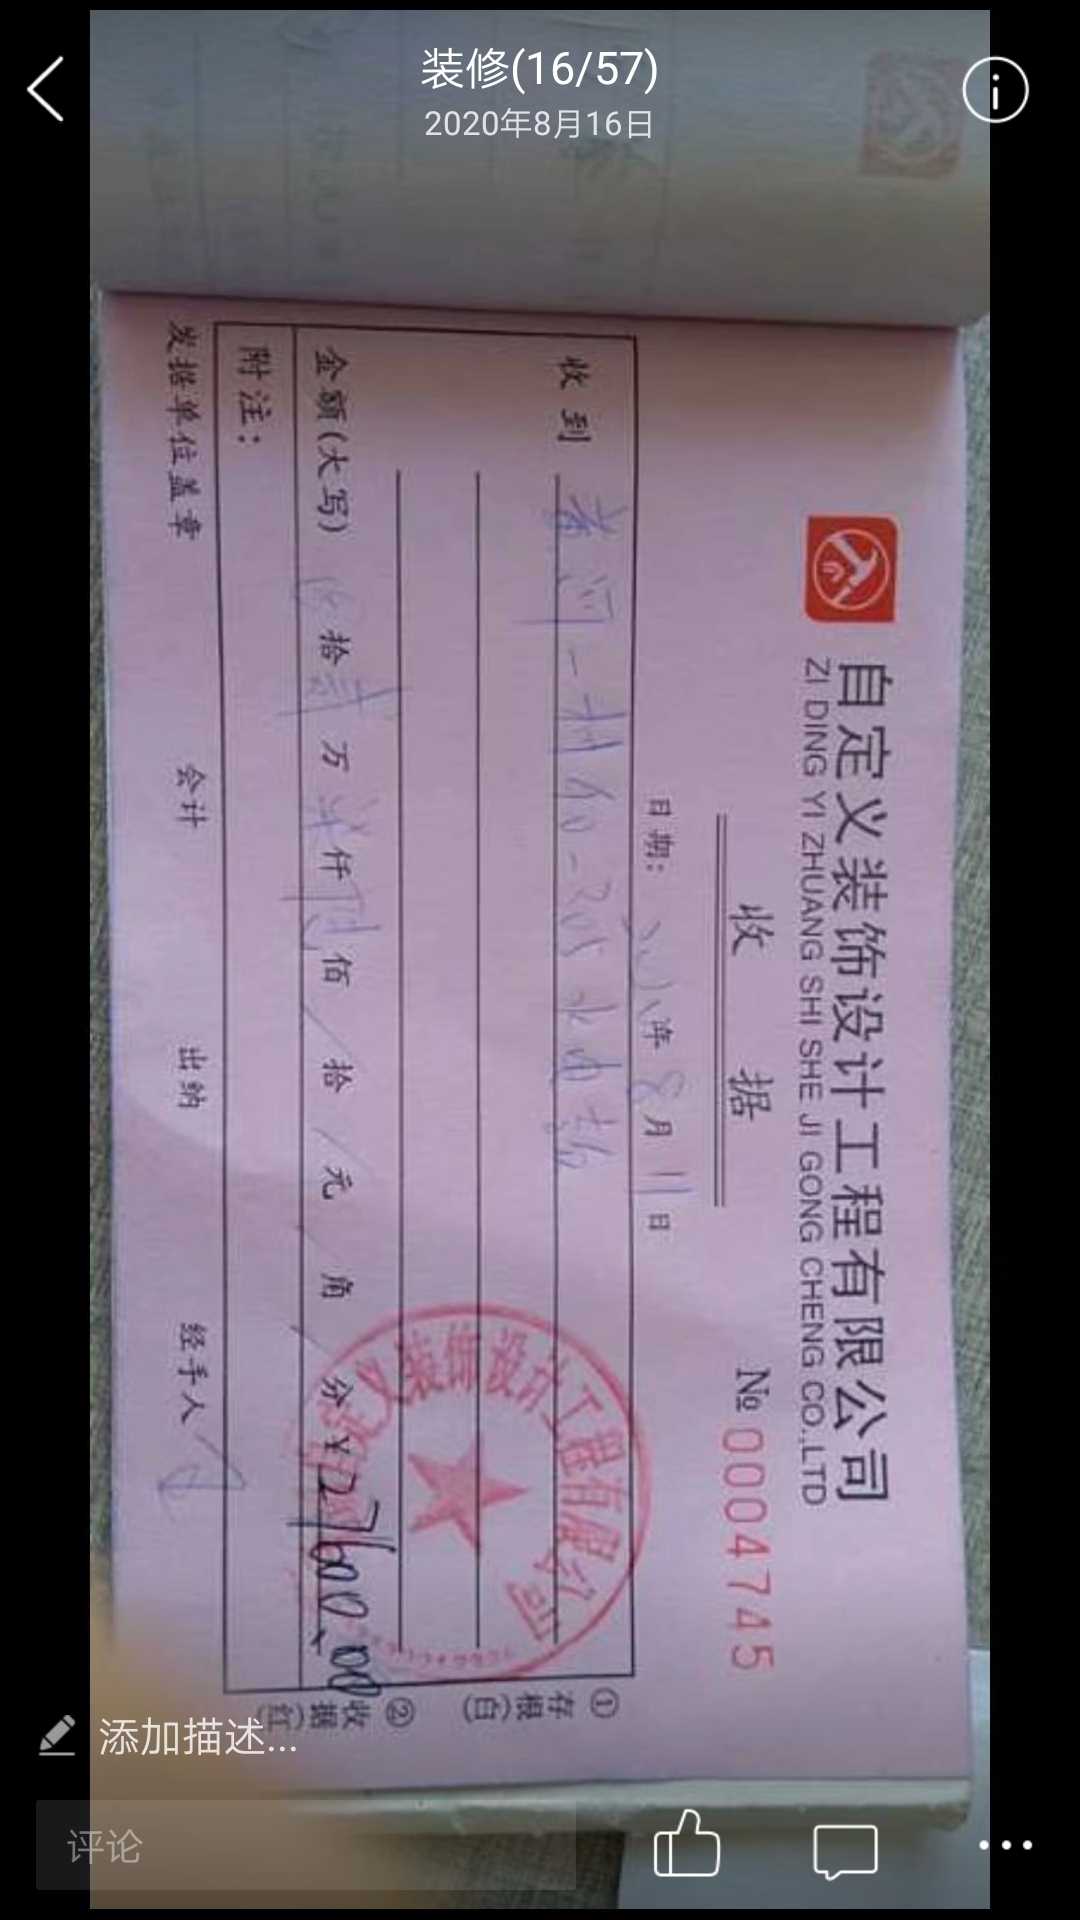 装修(16/57)
2020年8月16日
自定义装饰设计工程有限公司
ZI DING YI ZHUANG SHI SHE JI GONG CHENG CO.,LTD
收 据
№ 0004745
日期： 年 8 月 11 日
收到
水电款
金额(大写) 拾 贰 万 柒 仟 陆 佰 / 拾 / 元 / 角 / 分 ¥ 27600.00
附注：
发据单位盖章 会计 出纳 经手人
①存根(白) ②收据(红)
定义装饰设计工程有限公司
添加描述...
评论